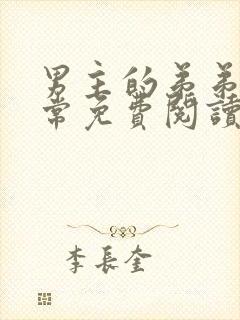 男主的弟弟
常免費閱讀
李長奎